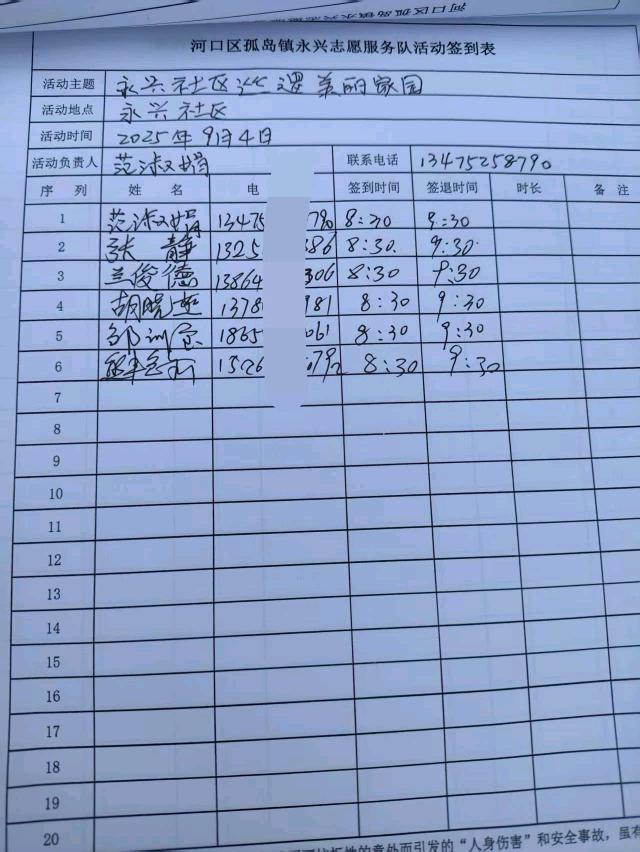 河口区孤岛镇永兴志愿服务队活动签到表
活动主题 永兴社区巡逻美丽家园
活动地点 永兴社区
活动时间 2025年9月4日
活动负责人 范淑娟 联系电话 13475258790
序 列 姓 名 电 签到时间 签退时间 时长 备 注
1 范淑娟 13475 790 8:30 9:30
2 张静 1325 386 8:30. 9:30
3 兰俊德 13864 306 8:30 9:30
4 胡晓 1378 981 8:30 9:30
5 邹训 1865 061 8:30 9:30
6 1526 079 8:30 9:30
7
8
9
10
11
12
13
14
15
16
17
18
19
20
的意外而引发的“人身伤害”和安全事故,虽有